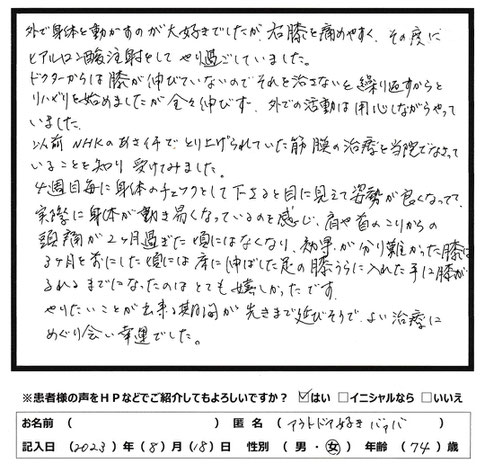 外で身体を動かすのが大好きでしたが、右膝を痛めやすく、その度に
ヒアルロン酸注射をして やり過ごしていました。
ドクターからは膝が伸びていないのでそれを治さないと繰り返すからと
リハビリを始めましたが全々伸びず、外での活動は用心しながらやって
いました。
以前 NHKのあさイチでとり上げられていた筋膜の治療を当院でなさって
いることを知り 受けてみました。
4週目毎に身体のチェックをして下さると目に見えて姿勢が良くなってて
実際に身体が動き易くなっているのを感じ、肩や首のこりからの
頭痛が2ヶ月過ぎた頃にはなくなり、効果が分り難かった膝は
3ヶ月を前にした頃には床に伸ばした足の膝うらに入れた手に膝が
ふれるまでになったのはとても嬉しかったです。
やりたいことが出来る期間が先きまで延びそうで、よい治療に
めぐり会い幸運でした。
※患者様の声をHPなどでご紹介してもよろしいですか？ ☑はい □イニシャルなら □いいえ
お名前 ( ) 匿名 ( アウトドア好きババ )
記入日 (2023) 年 (8) 月 (18) 日 性別 ( 男 ・ 女 ) 年齢 (74) 歳